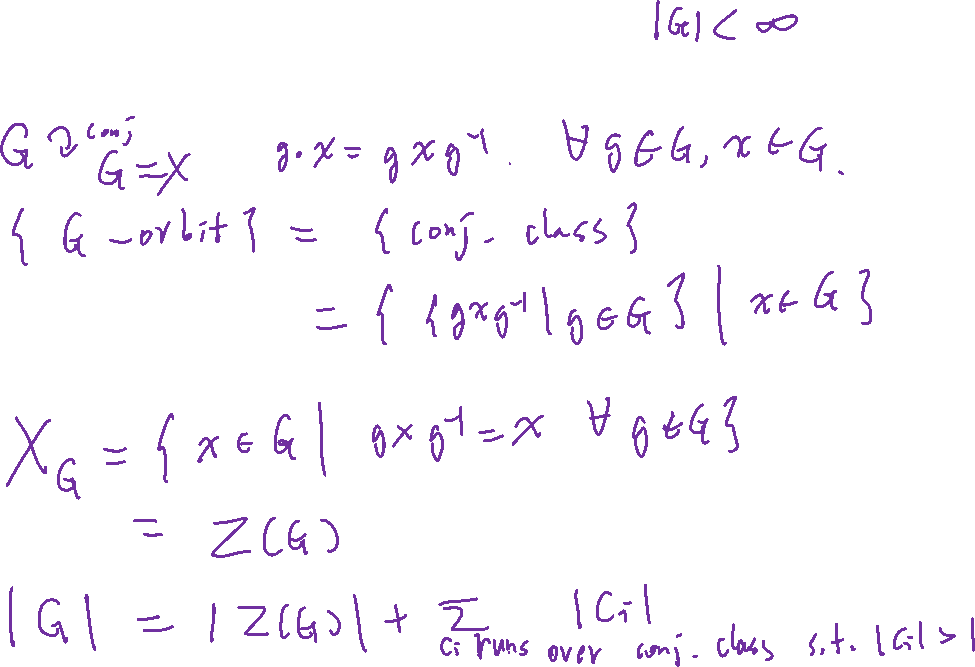 |G| < ∞
G ↷ conj G = X g·x = gxg⁻¹. ∀ g ∈ G, x ∈ G.
{ G-orbit } = { conj. class }
= { { gxg⁻¹ | g ∈ G } | x ∈ G }
X_G = { x ∈ G | gxg⁻¹ = x ∀ g ∈ G }
= Z(G)
|G| = |Z(G)| + Σ |Ci|
Ci runs over conj. class s.t. |Ci| > 1